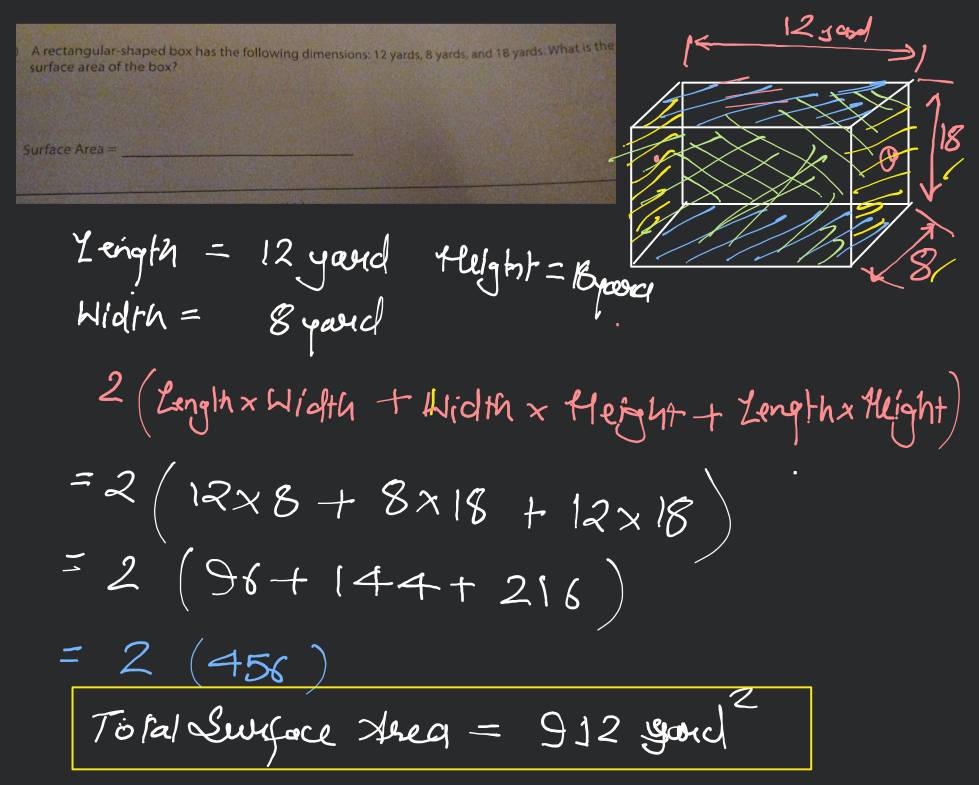 A rectangular-shaped box has the following dimensions: 12 yards, 8 yards, and 18 yards. What is the
surface area of the box?
Surface Area =
12 yard
18
8
Length = 12 yard Height = 18 yard
Width = 8 yard
2 (Length x Width + Width x Height + Length x Height)
= 2 ( 12 x 8 + 8 x 18 + 12 x 18 )
= 2 ( 96 + 144 + 216 )
= 2 ( 456 )
Total Surface Area = 912 yard²